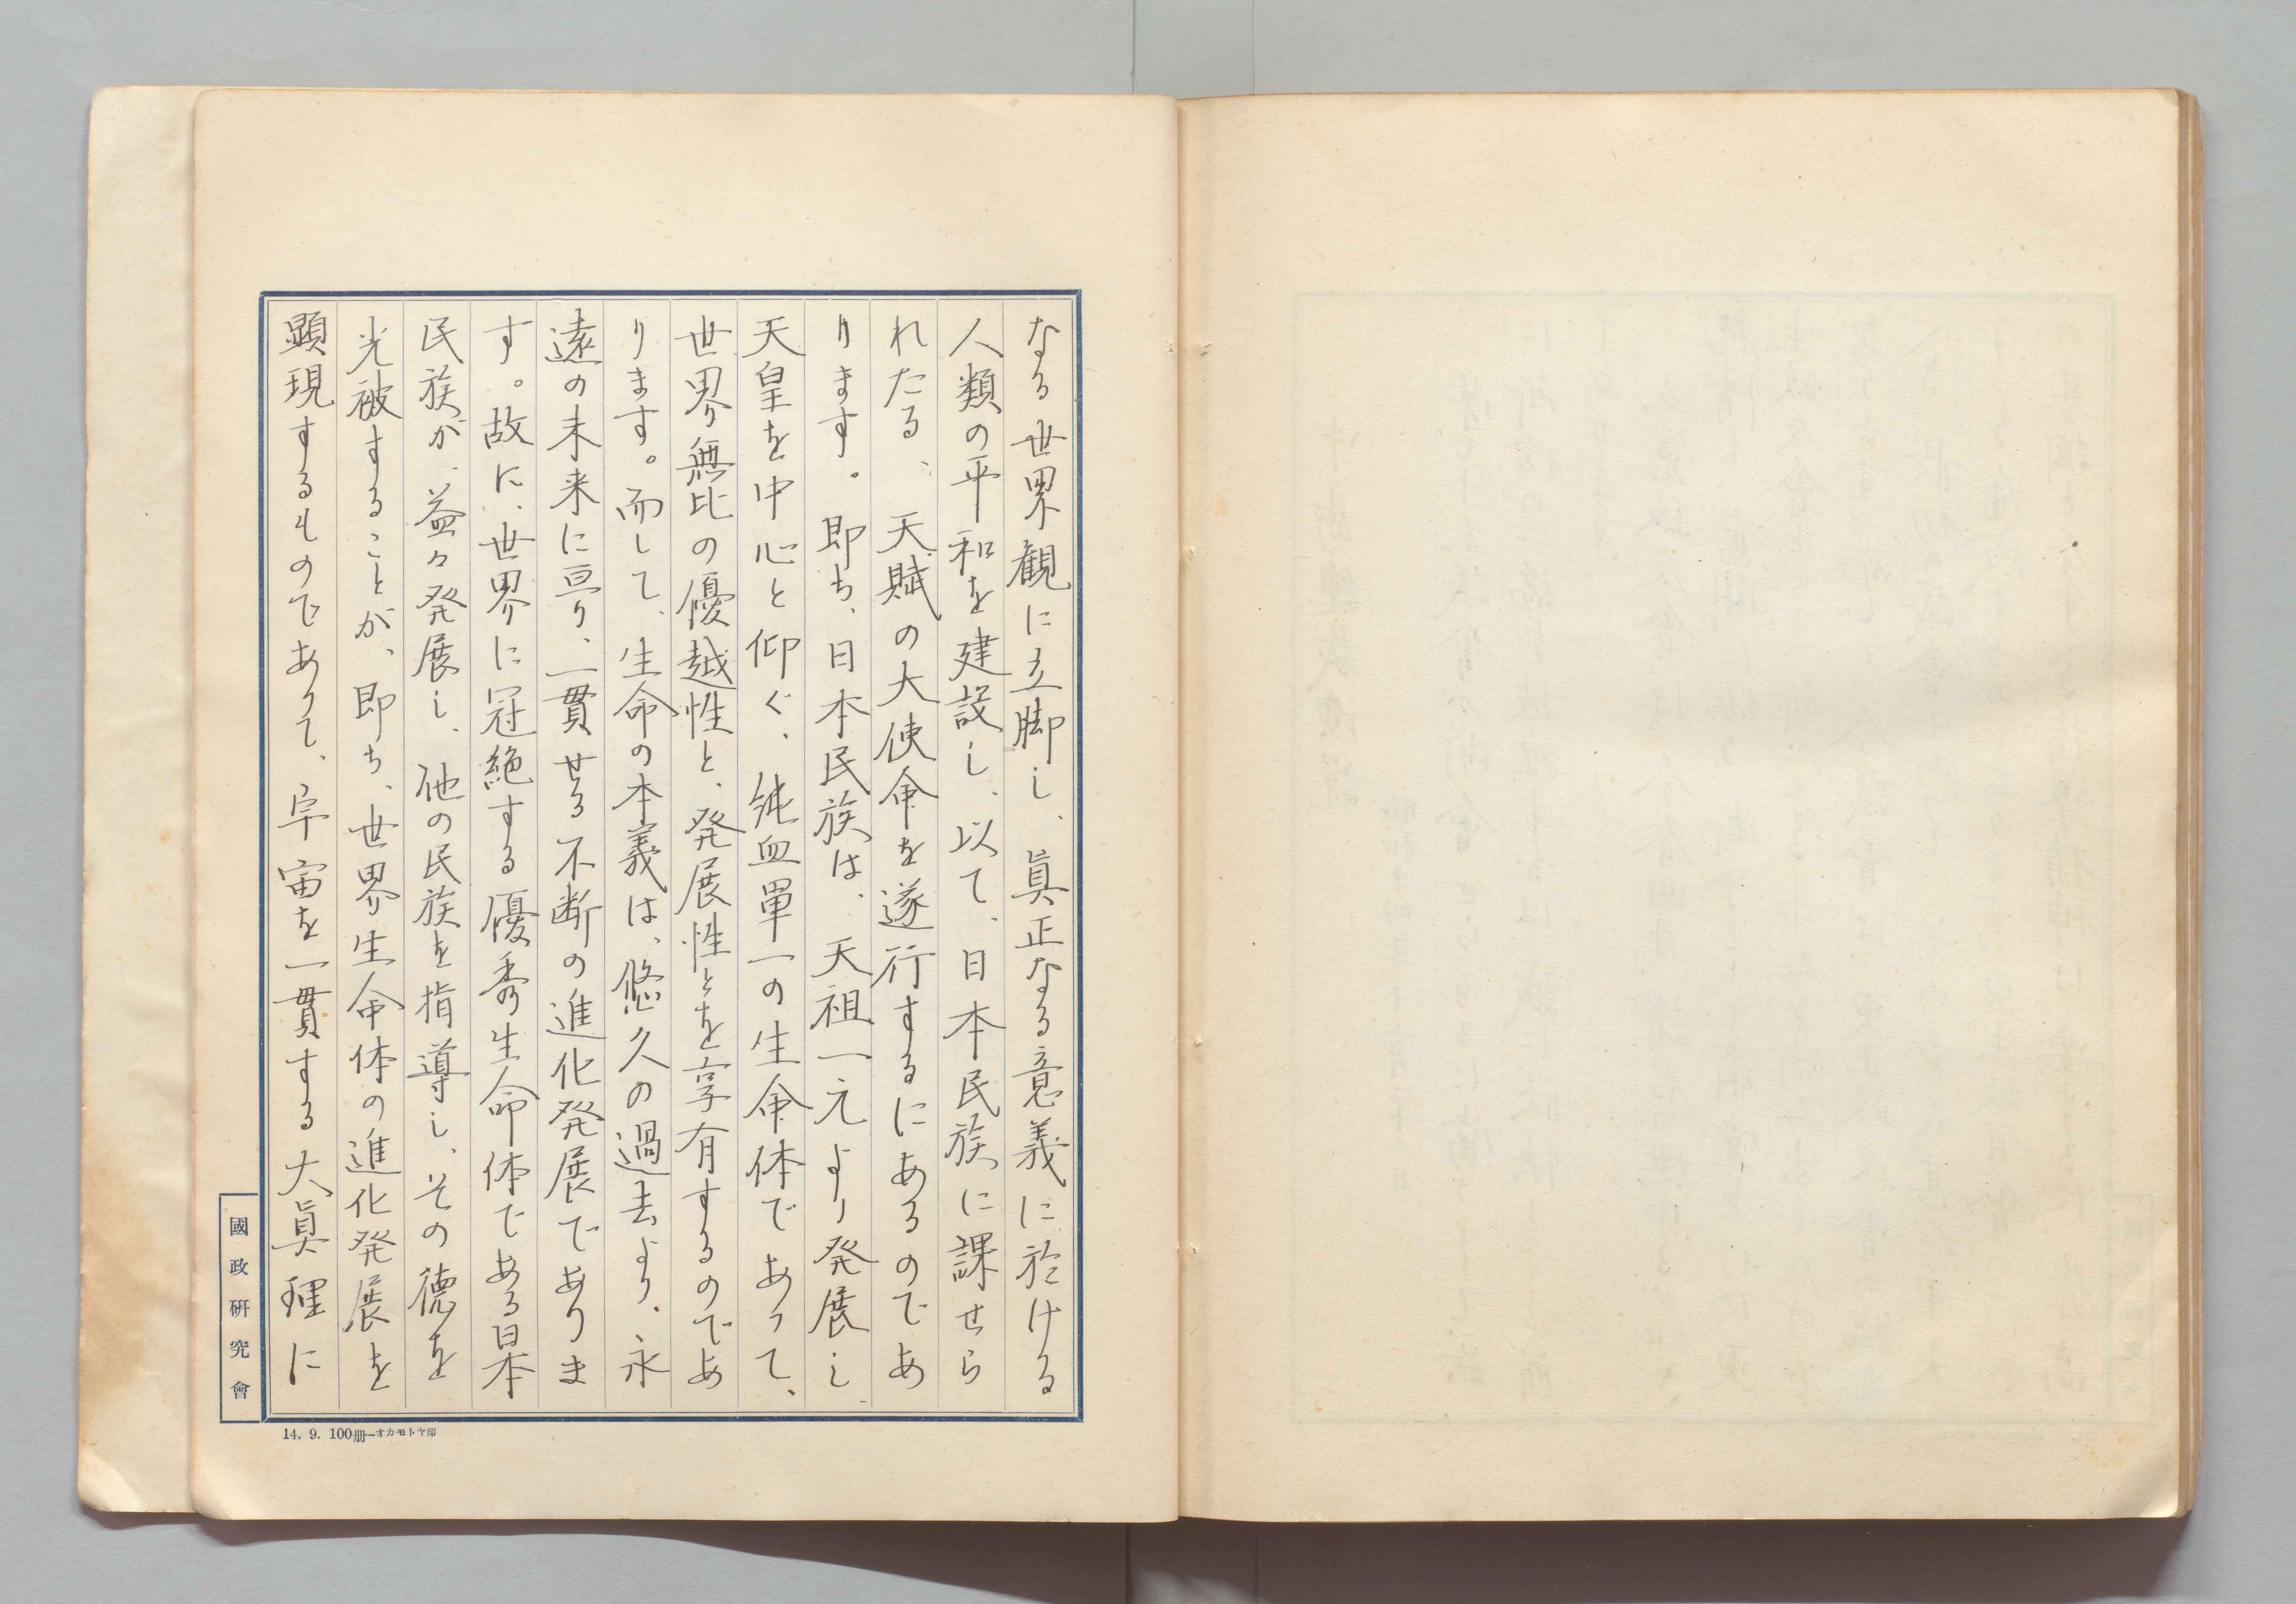 なる世界観に立脚し、眞正なる意義に於ける
人類の平和を建設し、以て、日本民族に課せら
れたる、天賦の大使命を遂行するにあるのであ
ります。即ち、日本民族は、天祖一元より発展し、
天皇を中心と仰ぐ、純血單一の生命体であつて、
世界無比の優越性と、発展性とを享有するのであ
ります。而して、生命の本義は、悠久の過去より、永
遠の未来に亘り、一貫せる不断の進化発展でありま
す。故に、世界に冠絶する優秀生命体である日本
民族が、益々発展し、他の民族を指導し、その徳を
光被することが、即ち、世界生命体の進化発展を
顕現するものでありて、宇宙を一貫する大眞理に
國政研究會
14. 9. 100冊—オカモトヤ印